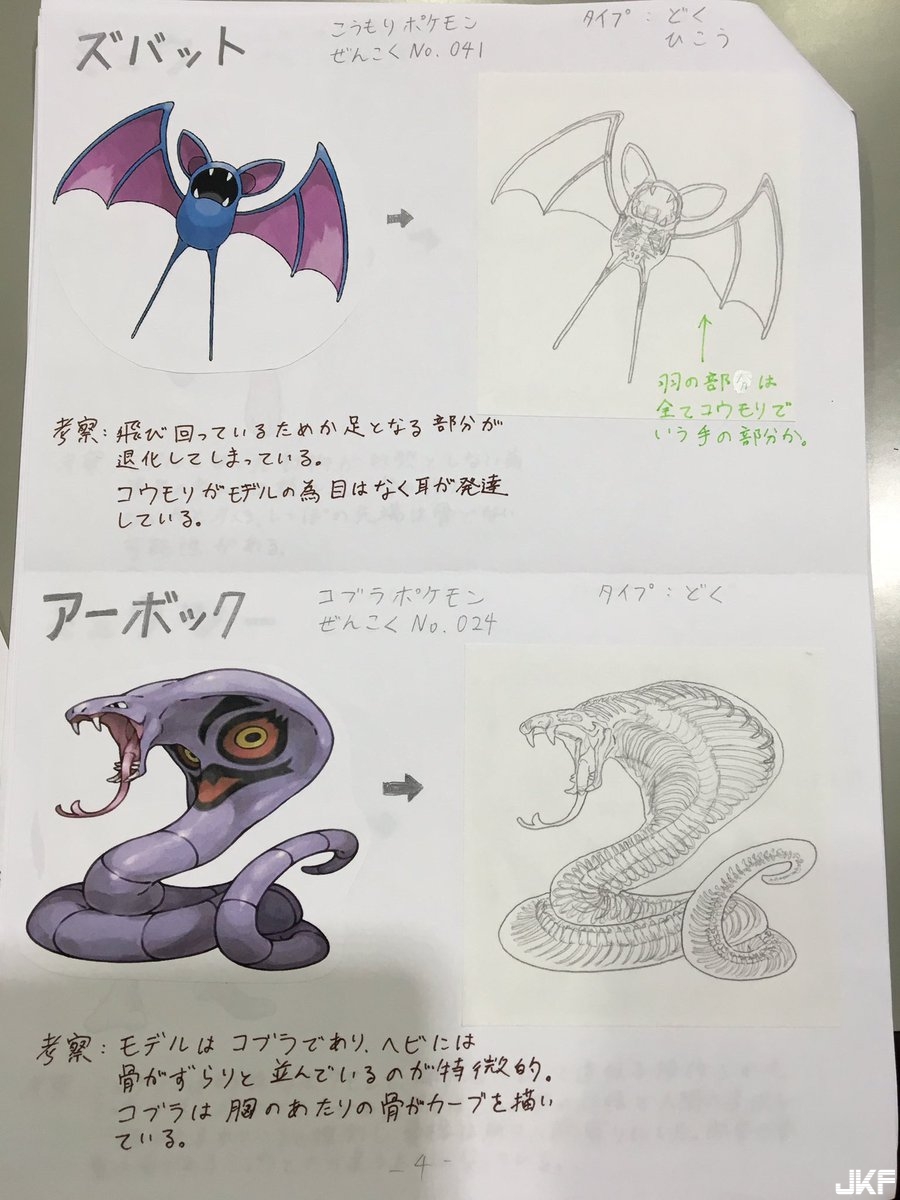 ズバット
こうもりポケモン
ぜんこくNo.041
タイプ：どく
ひこう
羽の部分は
全てコウモリで
いう手の部分か。
考察：飛び回っているためか足となる部分が
退化してしまっている。
コウモリがモデルの為目はなく耳が発達
している。
アーボック
コブラポケモン
ぜんこくNo.024
タイプ：どく
考察：モデルはコブラであり、ヘビには
骨がずらりと並んでいるのが特微的。
コブラは胸のあたりの骨がカーブを描い
ている。
-4-
JKF